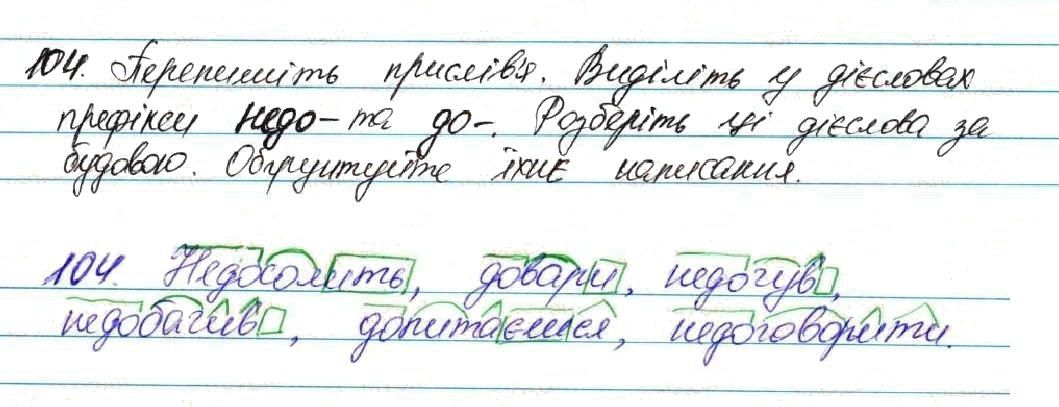 104. Перепишіть прислів'я. Виділіть у дієсловах
префікси недо- та до-. Розберіть ці дієслова за
будовою. Обґрунтуйте їхнє написання.
104. Недосолить, довари, недогув,
недобачив, допитаєшся, недоговорити.